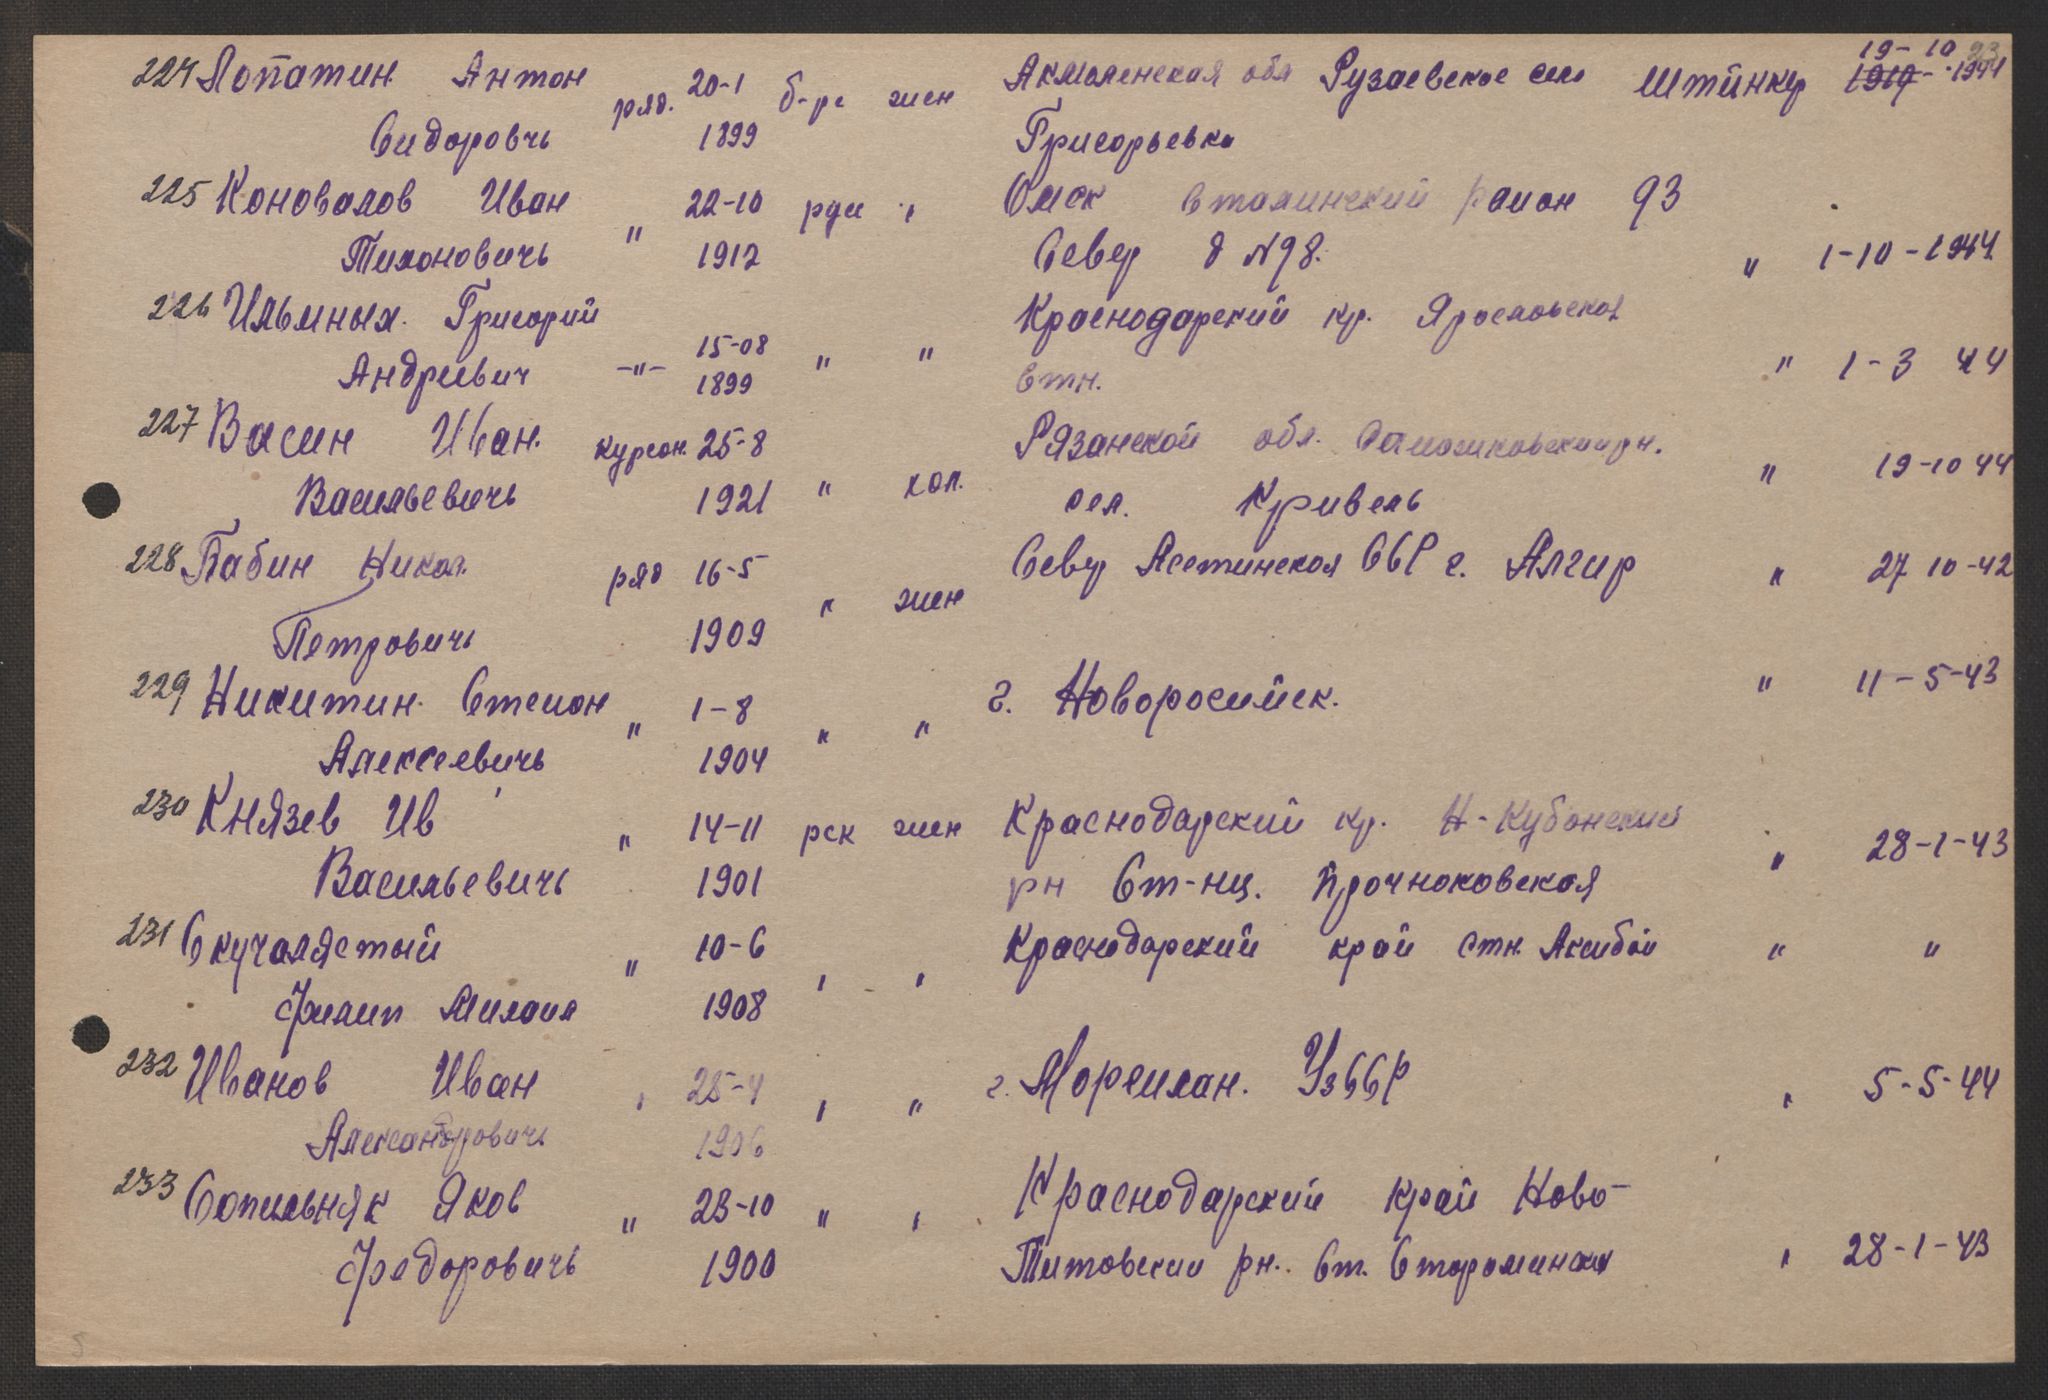 19-10 23
224 Лопатин Антон ряд. 20-1 б-рс жен Акмоленская обл Рузаевское село Штинкер 1919-1944
Сидоровчь 1899 Григорьевка
225 Коновалов Иван " 22-10 рди " Омск Сталинский район 93
Тихоновичь 1912 Север д N98. " 1-10-1944
226 Ильиных. Григорий Краснодарский кр. Ярословская
Андреевич -"- 15-08 1899 " " стн. " 1-3 44
227 Васин Иван. курсан. 25-8 Рязанской обл. рн.
Васильевичь 1921 " хол. сел. Кривель " 19-10 44
228 Бабин Никол. ряд 16-5 " жен Север Асетинская ССР г. Алгир " 27 10-42
Петровичь 1909
229 Никитин. Степон " 1-8 " " г. Новоросийск. " 11-5-43
Алексеевичь 1904
230 Князев Ив " 14-11 рск жен Краснодарский кр. Н-Кубонский " 28-1-43
Васильевичь 1901 рн Ст-нц. Прочноковская
231 Скучалястый " 10-6 " " Краснодарский край стн. " "
Филип Михаил 1908
232 Иванов Иван " 25-4 " " г. Моргилан. УзССР " 5-5-44
Александровичь 1906
233 Сопильняк Яков " 23-10 " " Краснодарский край Ново-
Федоровичь 1900 Титовский рн. Ст. Староминская " 28-1-43